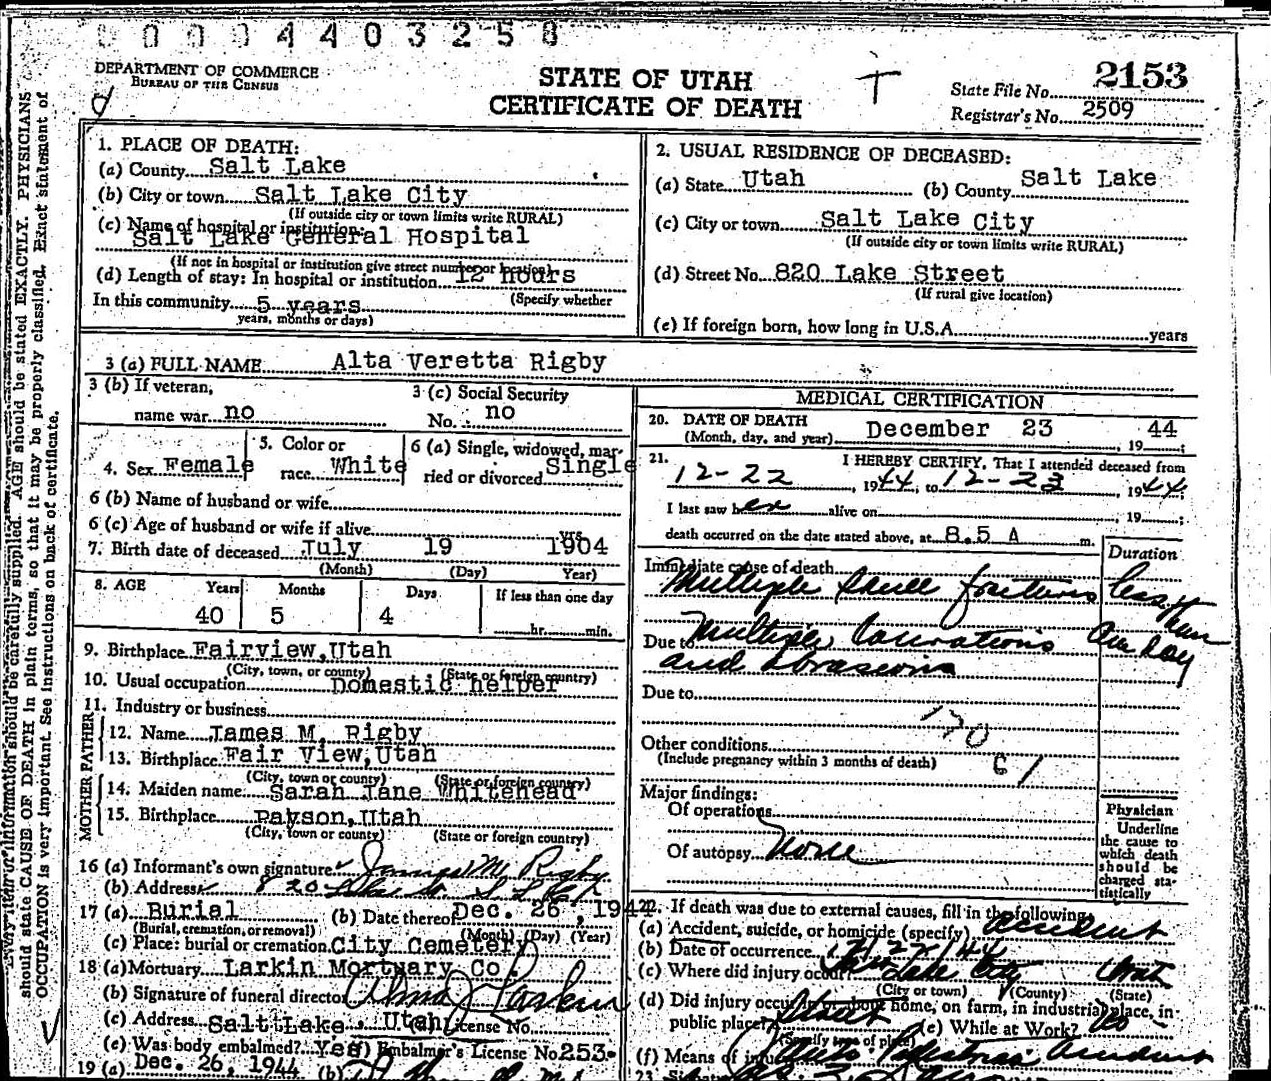 0 0 0 4 4 0 3 2 5 8
DEPARTMENT OF COMMERCE
BUREAU OF THE CENSUS
STATE OF UTAH
CERTIFICATE OF DEATH
State File No. 2153
Registrar's No. 2509
1. PLACE OF DEATH:
(a) County Salt Lake
(b) City or town Salt Lake City
(If outside city or town limits write RURAL)
(c) Name of hospital or institution:
Salt Lake General Hospital
(If not in hospital or institution give street number or location)
(d) Length of stay: In hospital or institution 12 hours
(Specify whether
In this community 5 years
years, months or days)
2. USUAL RESIDENCE OF DECEASED:
(a) State Utah (b) County Salt Lake
(c) City or town Salt Lake City
(If outside city or town limits write RURAL)
(d) Street No. 820 Lake Street
(If rural give location)
(e) If foreign born, how long in U.S.A. years
3 (a) FULL NAME Alta Veretta Rigby
3 (b) If veteran,
name war no
3 (c) Social Security
No. no
4. Sex Female
5. Color or
race White
6 (a) Single, widowed, mar-
ried or divorced Single
6 (b) Name of husband or wife
6 (c) Age of husband or wife if alive yrs
7. Birth date of deceased July 19 1904
(Month) (Day) Year)
8. AGE Years Months Days If less than one day
40 5 4 hr. min.
9. Birthplace Fairview, Utah
(City, town, or county) (State or foreign country)
10. Usual occupation Domestic helper
11. Industry or business
FATHER
12. Name James M. Rigby
13. Birthplace Fair View, Utah
(City, town or county) (State or foreign country)
MOTHER
14. Maiden name Sarah Jane Whitehead
15. Birthplace Payson, Utah
(City, town or county) (State or foreign country)
16 (a) Informant's own signature James M. Rigby
(b) Address 820 Lake St. S L City
17 (a) Burial (b) Date thereof Dec. 26, 1944
(Burial, cremation, or removal) (Month) (Day) (Year)
(c) Place: burial or cremation City Cemetery
18 (a) Mortuary Larkin Mortuary Co.
(b) Signature of funeral director Alma J Larkin
(c) Address Salt Lake, Utah (d) License No.
(e) Was body embalmed? Yes (f) Embalmer's License No 253
19 (a) Dec. 26, 1944 (b)
MEDICAL CERTIFICATION
20. DATE OF DEATH
(Month, day, and year) December 23 1944
21. I HEREBY CERTIFY, That I attended deceased from
12-22, 1944, to 12-23, 1944;
I last saw her alive on , 19 ;
death occurred on the date stated above, at 8.5 A m.
Duration
Immediate cause of death
Multiple Skull fractures less than
Due to Multiple lacerations One Day
and abrasions
Due to
170
Other conditions
(Include pregnancy within 3 months of death)
61
Major findings:
Of operations
Of autopsy None
Physician
Underline
the cause to
which death
should be
charged sta-
tistically
22. If death was due to external causes, fill in the following:
(a) Accident, suicide, or homicide (specify) accident
(b) Date of occurrence 12/22/44
(c) Where did injury occur? Salt Lake City Utah
(City or town) (County) (State)
(d) Did injury occur in or about home, on farm, in industrial place, in
public place? Street (e) While at Work? No
(Specify type of place)
(f) Means of injury Auto Pedestrian accident
should state CAUSE OF DEATH in plain terms, so that it may be properly classified. Exact statement of
OCCUPATION is very important. See instructions on back of certificate.
Every item of information should be carefully supplied. AGE should be stated EXACTLY. PHYSICIANS